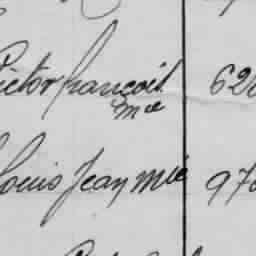 Victor françois 62
Mie
Louis Jean Mie 97